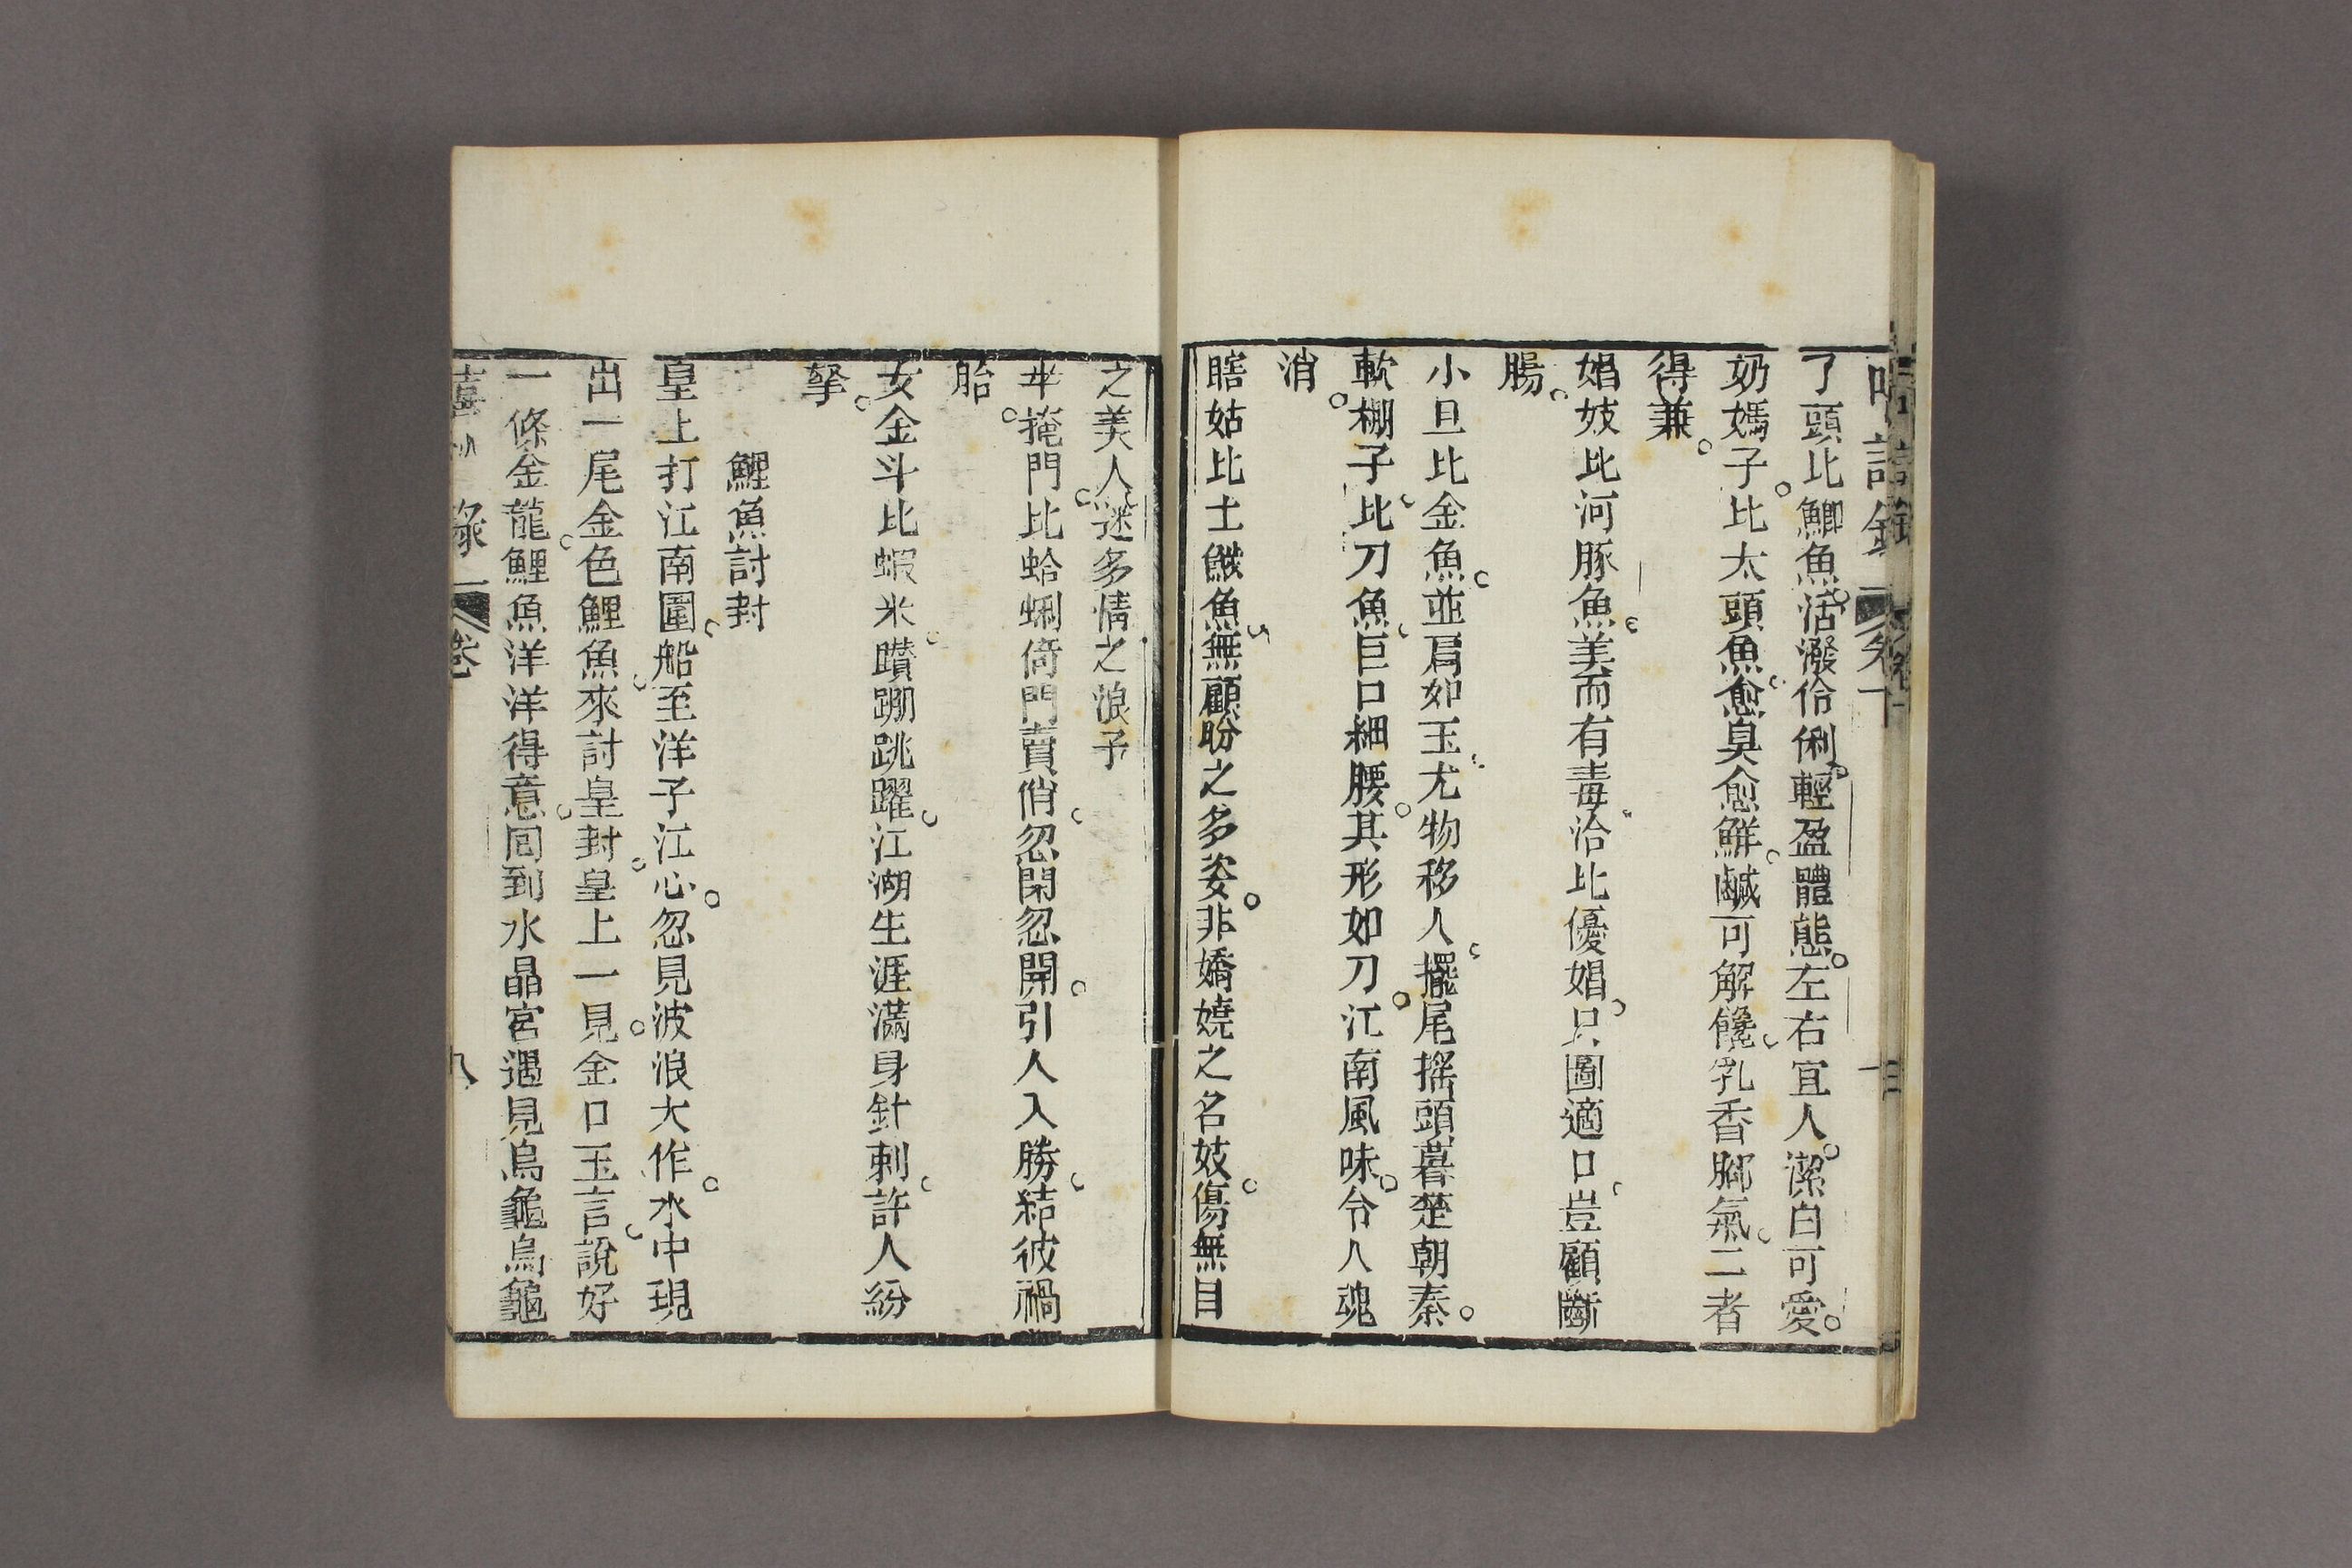 了頭比鯽魚。活潑伶俐。輕盈體態。左右宜人。潔白可愛。
奶媽子。比太頭魚。愈臭愈鮮。鹹可解饞。乳香腳氣。二者
得兼。
娼妓比河豚魚。美而有毒。治比優娼。只圖適口。豈顧斷
腸。
小旦比金魚。並肩如玉。尤物移人。擺尾搖頭暮楚朝秦。
軟棚子。比刀魚。巨口細腰。其形如刀。江南風味。令人魂
消。
瞎姑比土鱉魚。無顧盼之多姿。非嬌嬈之名妓。傷無目
之美人。迷多情之浪子
半掩門比蛤蜊倚門賣俏。忽閉忽開。引人入勝。結彼禍
胎。
女金斗比蝦米。躦蹦跳躍。江湖生涯滿身針刺。許人紛
拏。
鯉魚討封
皇上打江南圍。船至洋子江心。忽見波浪大作。水中現
出一尾金色鯉魚。來討皇封。皇上一見。金口玉言。說好
一條金龍。鯉魚洋洋得意。回到水晶宮遇見烏龜烏龜
錄 卷